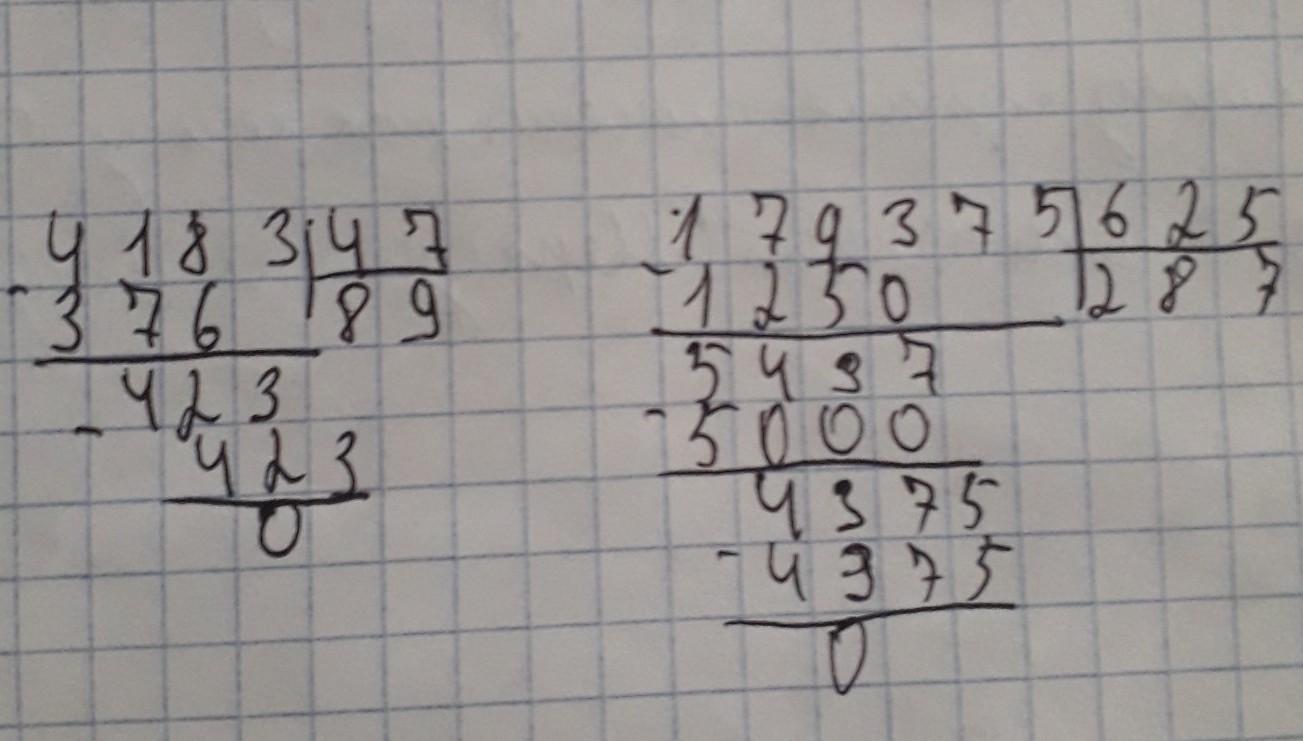 4183 47
- 376 89
423
- 423
0
179375 625
- 1250 287
5437
- 5000
4375
- 4375
0